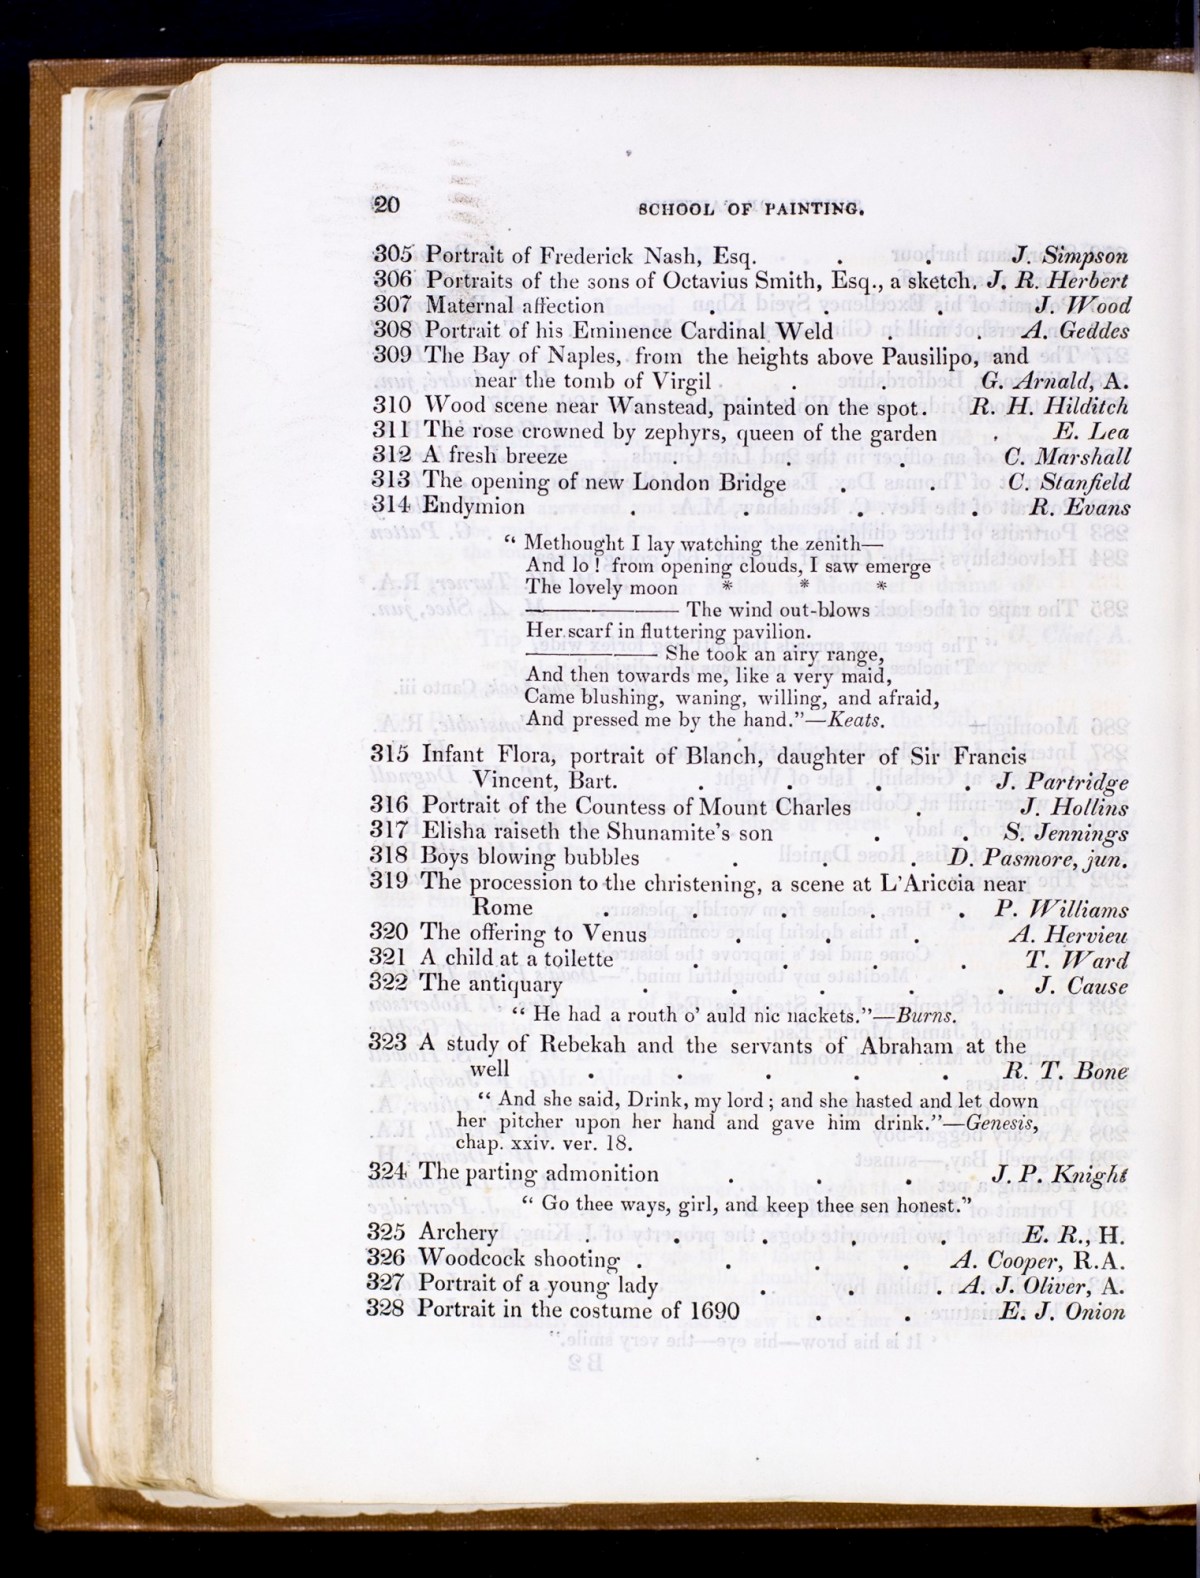 20
SCHOOL OF PAINTING.
305 Portrait of Frederick Nash, Esq. . . J. Simpson
306 Portraits of the sons of Octavius Smith, Esq., a sketch. J. R. Herbert
307 Maternal affection . . . J. Wood
308 Portrait of his Eminence Cardinal Weld . . A. Geddes
309 The Bay of Naples, from the heights above Pausilipo, and
near the tomb of Virgil . . G. Arnald, A.
310 Wood scene near Wanstead, painted on the spot. R. H. Hilditch
311 The rose crowned by zephyrs, queen of the garden . E. Lea
312 A fresh breeze . . . C. Marshall
313 The opening of new London Bridge . . C. Stanfield
314 Endymion . . . . R. Evans
“ Methought I lay watching the zenith—
And lo ! from opening clouds, I saw emerge
The lovely moon * * *
———————— The wind out-blows
Her scarf in fluttering pavilion.
——————— She took an airy range,
And then towards me, like a very maid,
Came blushing, waning, willing, and afraid,
And pressed me by the hand.”—Keats.
315 Infant Flora, portrait of Blanch, daughter of Sir Francis
Vincent, Bart. . . . . J. Partridge
316 Portrait of the Countess of Mount Charles . J. Hollins
317 Elisha raiseth the Shunamite's son . . S. Jennings
318 Boys blowing bubbles . . . D. Pasmore, jun.
319 The procession to the christening, a scene at L'Ariccia near
Rome . . . . . P. Williams
320 The offering to Venus . . . A. Hervieu
321 A child at a toilette . . . . T. Ward
322 The antiquary . . . . . J. Cause
“ He had a routh o' auld nic nackets.”—Burns.
323 A study of Rebekah and the servants of Abraham at the
well . . . . . R. T. Bone
“ And she said, Drink, my lord ; and she hasted and let down
her pitcher upon her hand and gave him drink.”—Genesis,
chap. xxiv. ver. 18.
324 The parting admonition . . . J. P. Knight
“ Go thee ways, girl, and keep thee sen honest.”
325 Archery . . . . E. R., H.
326 Woodcock shooting . . . . A. Cooper, R.A.
327 Portrait of a young lady . . . A. J. Oliver, A.
328 Portrait in the costume of 1690 . . E. J. Onion